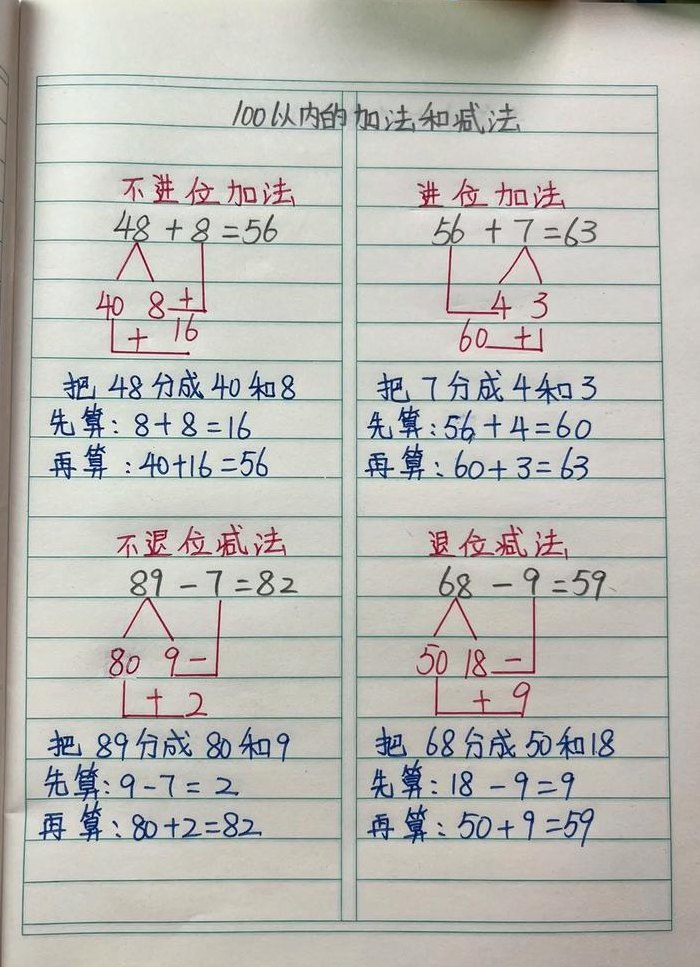 100以内的加法和减法
不进位加法
48+8=56
40 8 +
+ 16
把48分成40和8
先算:8+8=16
再算:40+16=56
进位加法
56+7=63
4 3
60 +
把7分成4和3
先算:56+4=60
再算:60+3=63
不退位减法
89-7=82
80 9 -
+ 2
把89分成80和9
先算:9-7=2
再算:80+2=82
退位减法
68-9=59
50 18 -
+ 9
把68分成50和18
先算:18-9=9
再算:50+9=59